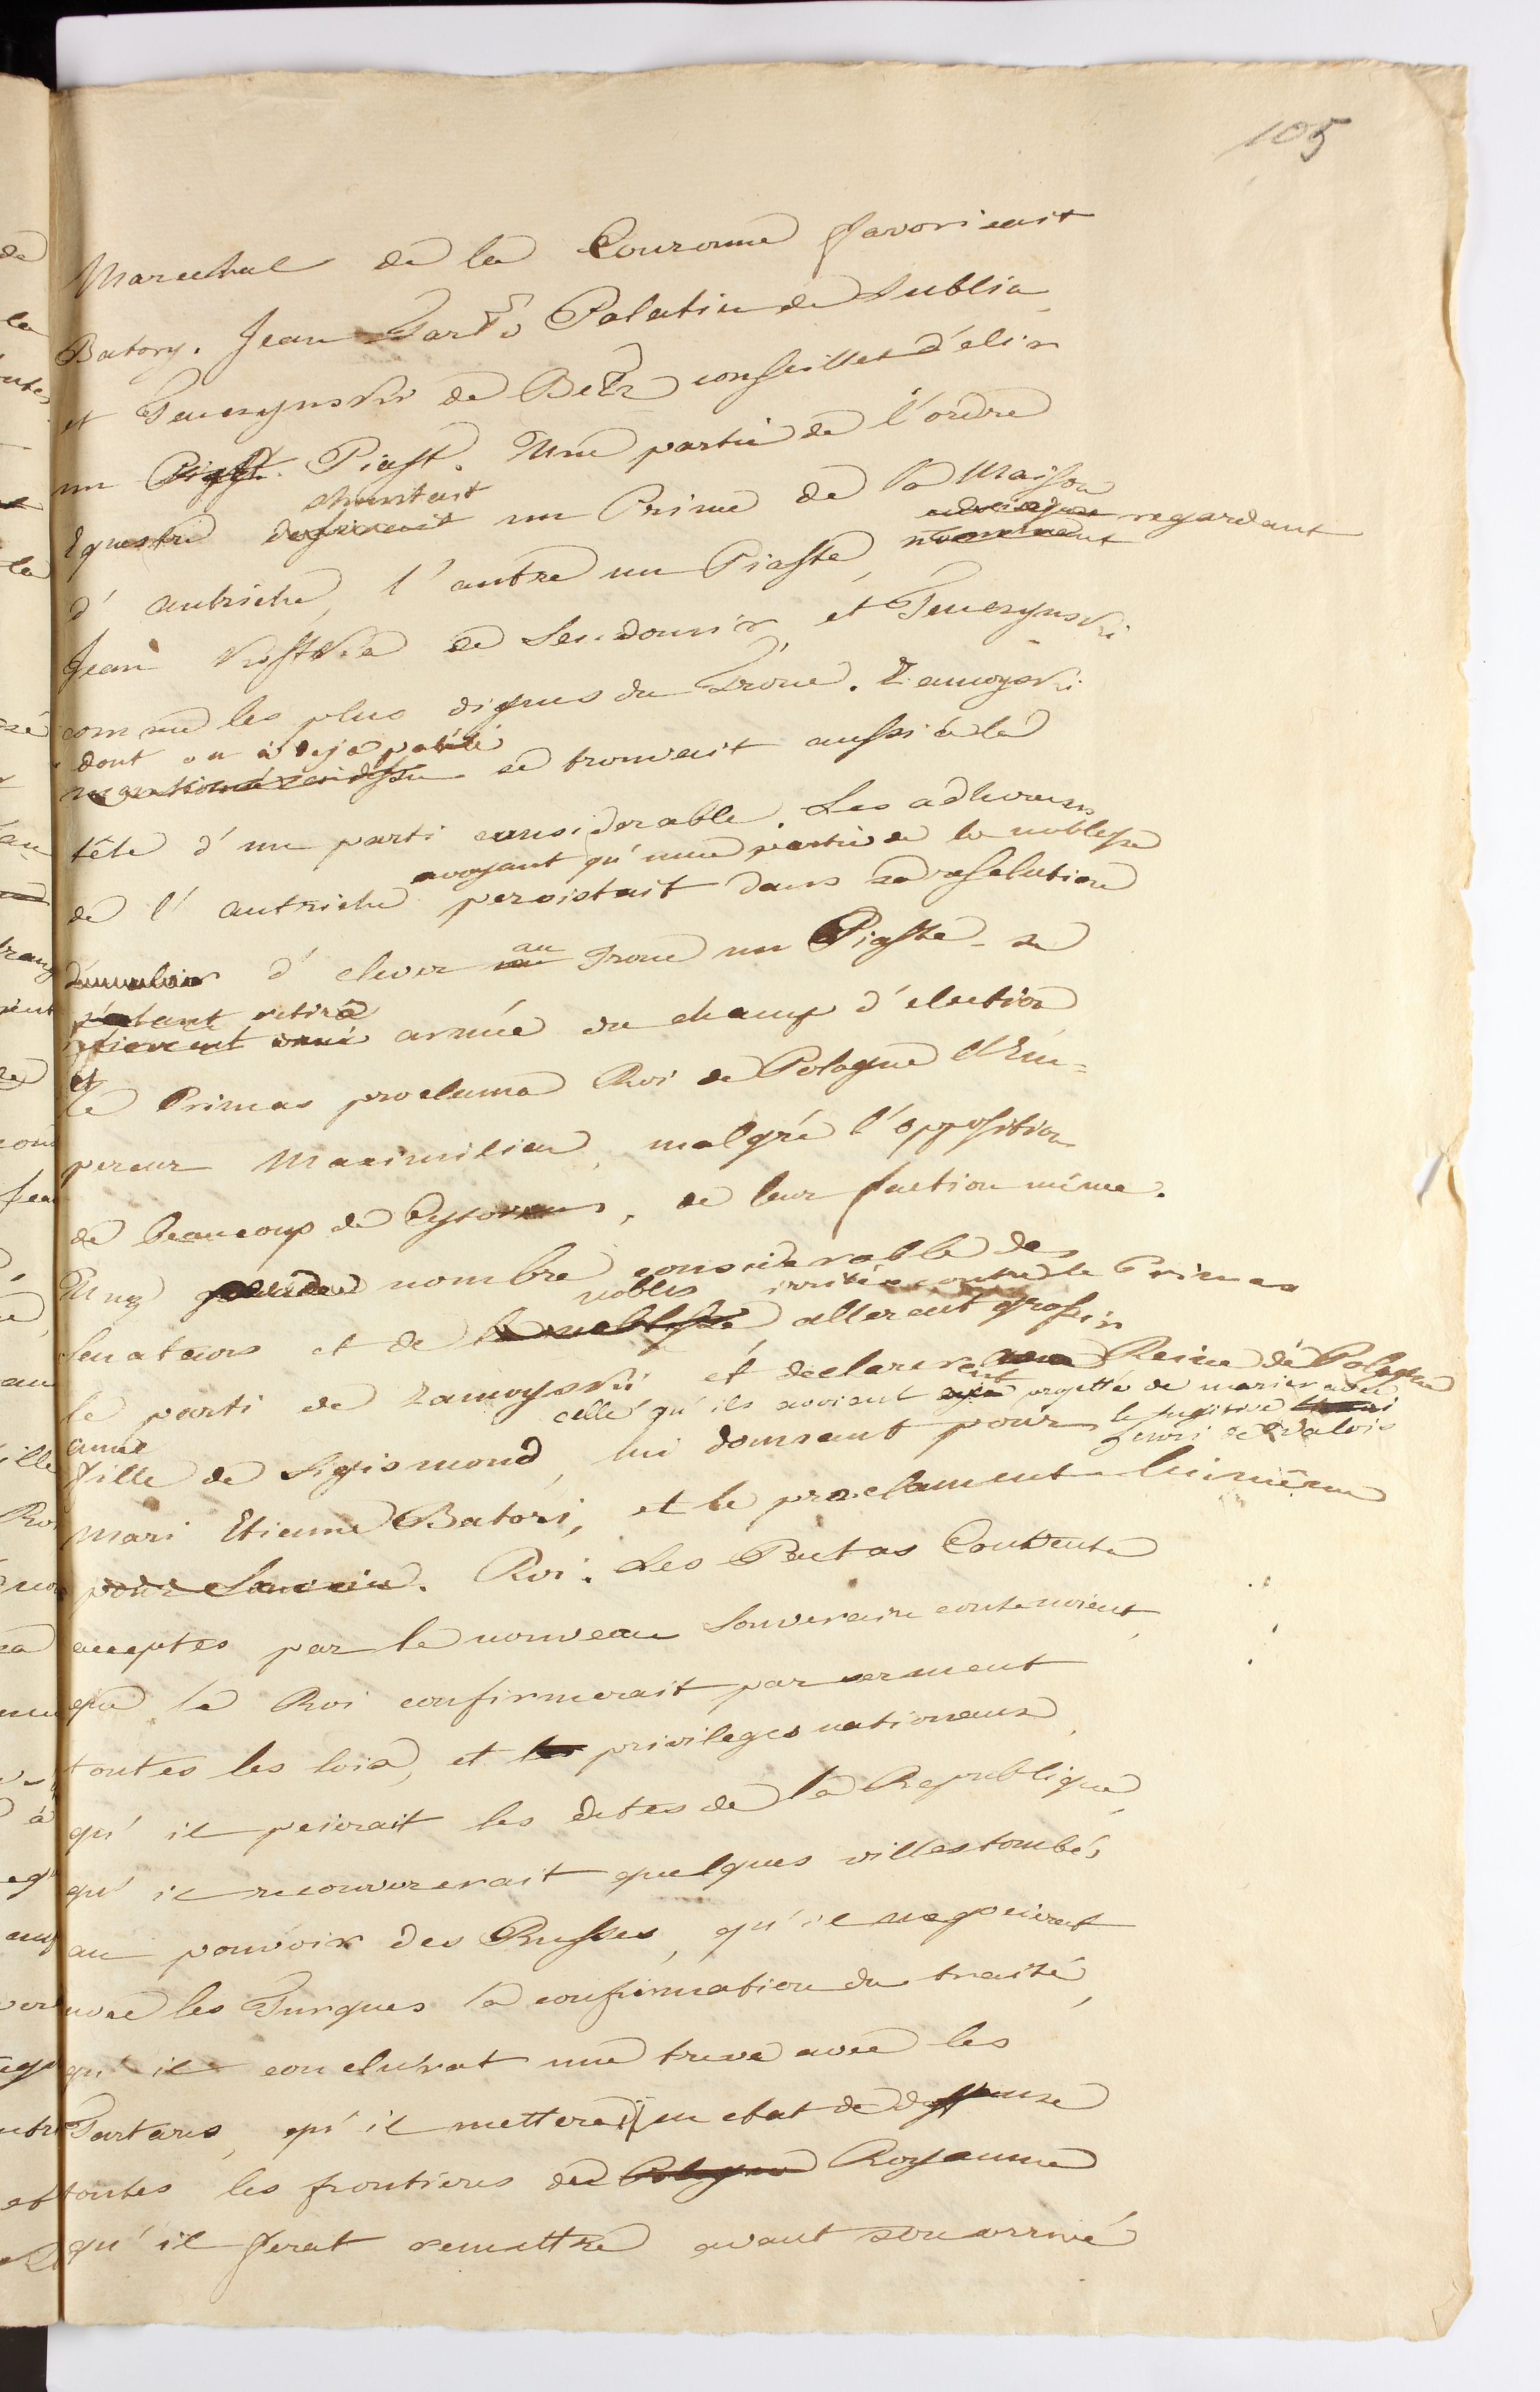 105
Marechal de la Couronne favorisait
Batory. Jean Tarło Palatin de Lublin
et Tenczynski de Bełz conseillet d'elir
un Piast. Piast. Une partie de l'ordre
shouitait
Equestre un Prince de la Maison
regardant
d'autriche, l'autre un Piaste,
Jean Kostka de Sendomir, et Tenczynski
comme les plus dignes du Trone. Zamoyski
dont on à deja parlé
se trouvait aussi à la
tête d'un parti considerable. Les adherens
avoyant qu'une partie de la noblesse
de l'autriche persistait dans sa resolution
d'elever au Trone un Piaste se
s'etant retiré
armée du champ d'election
et
le Primas proclama Roi de Pologne l'Em=
pereur Maximilien, malgré l'opposition
de beaucoup de, de leur faction même.
Un nombre considerable des
nobles irrités contre le Primas
Senateurs et de la noblesse allerent grossir
le parti de Zamoyski, et declarerent Reine de Pologne
celle qu'ils avoient projetté de marier avec
anne le fugitive Henri de Valois
fille de Sigismond, lui donnant pour
Mari Etienne Batori, et le proclament luimême
pour Souverain. Roi. Les Pactas Conventa
acceptes par le nouveau Souverain contenoient,
que le Roi confirmerait par serment
toutes les lois, et les privileges nationaux,
qu'il peierait les detes de la Republique,
qu'il recouvrerait quelques villes tombés
au pouvoir des Russes, qu'il negocierat
avec les Turques la confirmation du traité,
qu'il conclurat une treve avec les
Tartares, qu'il mettera en etat de deffense
toutes les frontieres de Pologne Royaume
qu'il ferat remettre avant son arrivé